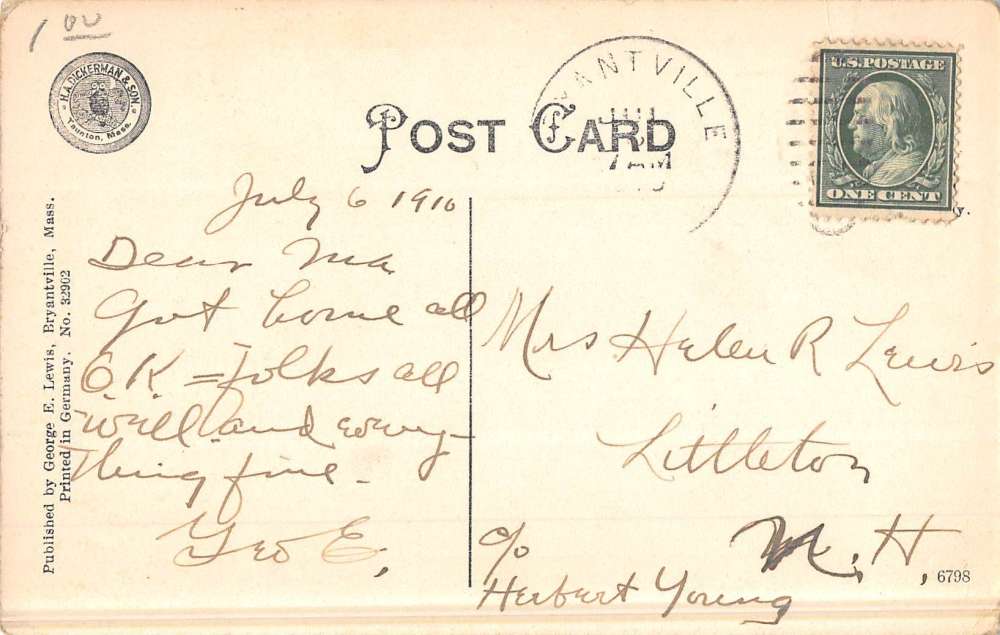 1 00
H.A. DICKERMAN & SON.
Taunton, Mass.
POST CARD
ANTVILLE
JUL
7 AM
U.S. POSTAGE
ONE CENT
y.
July 6 1910
Dear Ma
Got home all
O.K = folks all
well and every-
thing fine -
Geo E.
Mrs Helen R Lewis
Littleton
N. H,
c/o
Herbert Young
6798
Published by George E. Lewis, Bryantville, Mass.
Printed in Germany. No. 32902